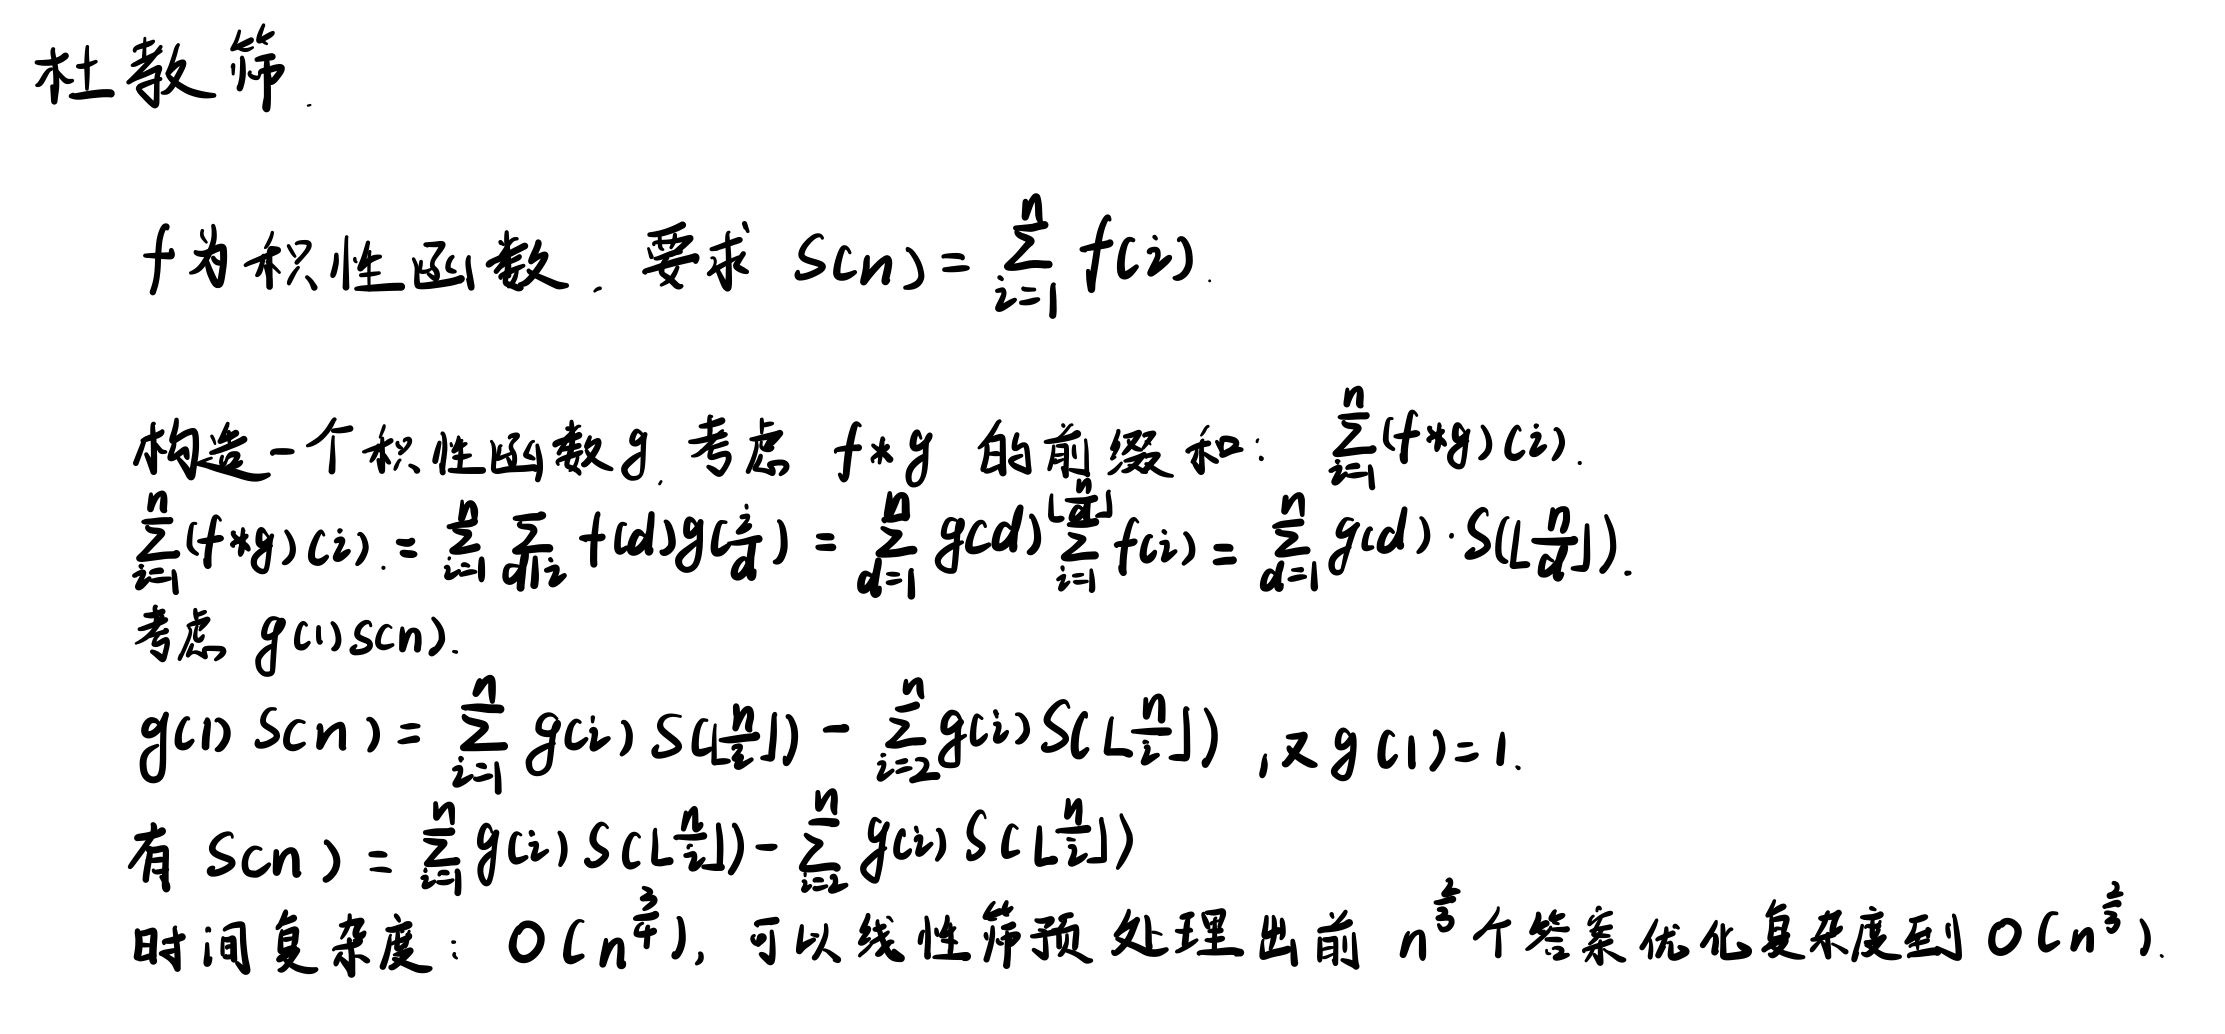 杜教筛.
f为积性函数. 要求 S(n) = \sum_{i=1}^{n} f(i).
构造一个积性函数g. 考虑 f*g 的前缀和: \sum_{i=1}^{n} (f*g)(i).
\sum_{i=1}^{n} (f*g)(i). = \sum_{i=1}^{n} \sum_{d|i} f(d)g(\frac{i}{d}) = \sum_{d=1}^{n} g(d) \sum_{i=1}^{\lfloor \frac{n}{d} \rfloor} f(i) = \sum_{d=1}^{n} g(d) \cdot S(\lfloor \frac{n}{d} \rfloor).
考虑 g(1)S(n).
g(1) S(n) = \sum_{i=1}^{n} g(i) S(\lfloor \frac{n}{i} \rfloor) - \sum_{i=2}^{n} g(i) S(\lfloor \frac{n}{i} \rfloor) ,又 g(1)=1.
有 S(n) = \sum_{i=1}^{n} g(i) S(\lfloor \frac{n}{i} \rfloor) - \sum_{i=2}^{n} g(i) S(\lfloor \frac{n}{i} \rfloor)
时间复杂度: O(n^{\frac{3}{4}}), 可以线性筛预处理出前 n^{\frac{2}{3}} 个答案优化复杂度到 O(n^{\frac{2}{3}}).